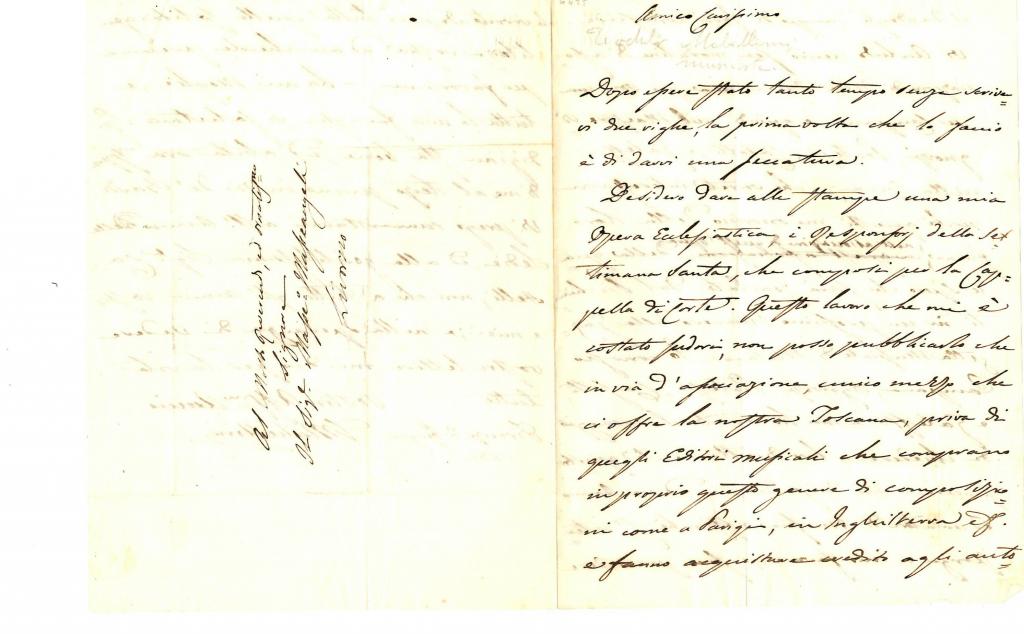 Al Molto Gius.di, ed onor.
Signore
Il Sig.r Masse Massangeli
Livorno
Amico Carissimo
Teodulo Mabellini
musicista
Dopo essere stato tanto tempo senza scrive=
vi due righe, la prima volta che lo faccio
è di darvi una seccatura.
Desidero dare alle stampe una mia
Opera Ecclesiastica, i Responsorj della Set
timana Santa, che composi per la Cap=
pella di Corte. Questo lavoro che mi è
costato sudori, non posso pubblicarlo che
in via d'associazione unico mezzo che
ci offre la nostra Toscana, priva di
quegli Editori musicali che comprano
in proprio questo genere di composizio=
ni come a Parigi, in Inghilterra &.
e fanno acquistare credito agli auto=